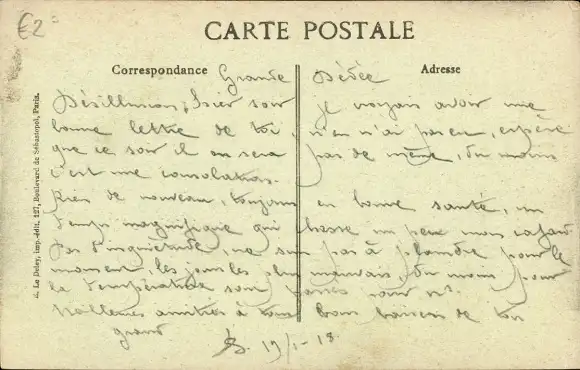 €2=
CARTE POSTALE
Correspondance
Adresse
Grande Dédée
Désillusion, hier soir je croyais avoir une
bonne lettre de toi, n'en n'ai pas eu, espère
que ce soir il en sera pas de même, du moins
c'est une consolation.
Rien de nouveau, toujours en bonne santé, un
temps magnifique qui un peu mon cafard
Pas d'inquiétude, ne suis pas à plaindre pour le
moment, les jours les plus mauvais, du moins pour
la température sont passés pour
amitiés à tous bons baisers de ton
grand
19/1-18
A. Le Deley, imp.-édit. 127, Boulevard de Sébastopol, Paris.